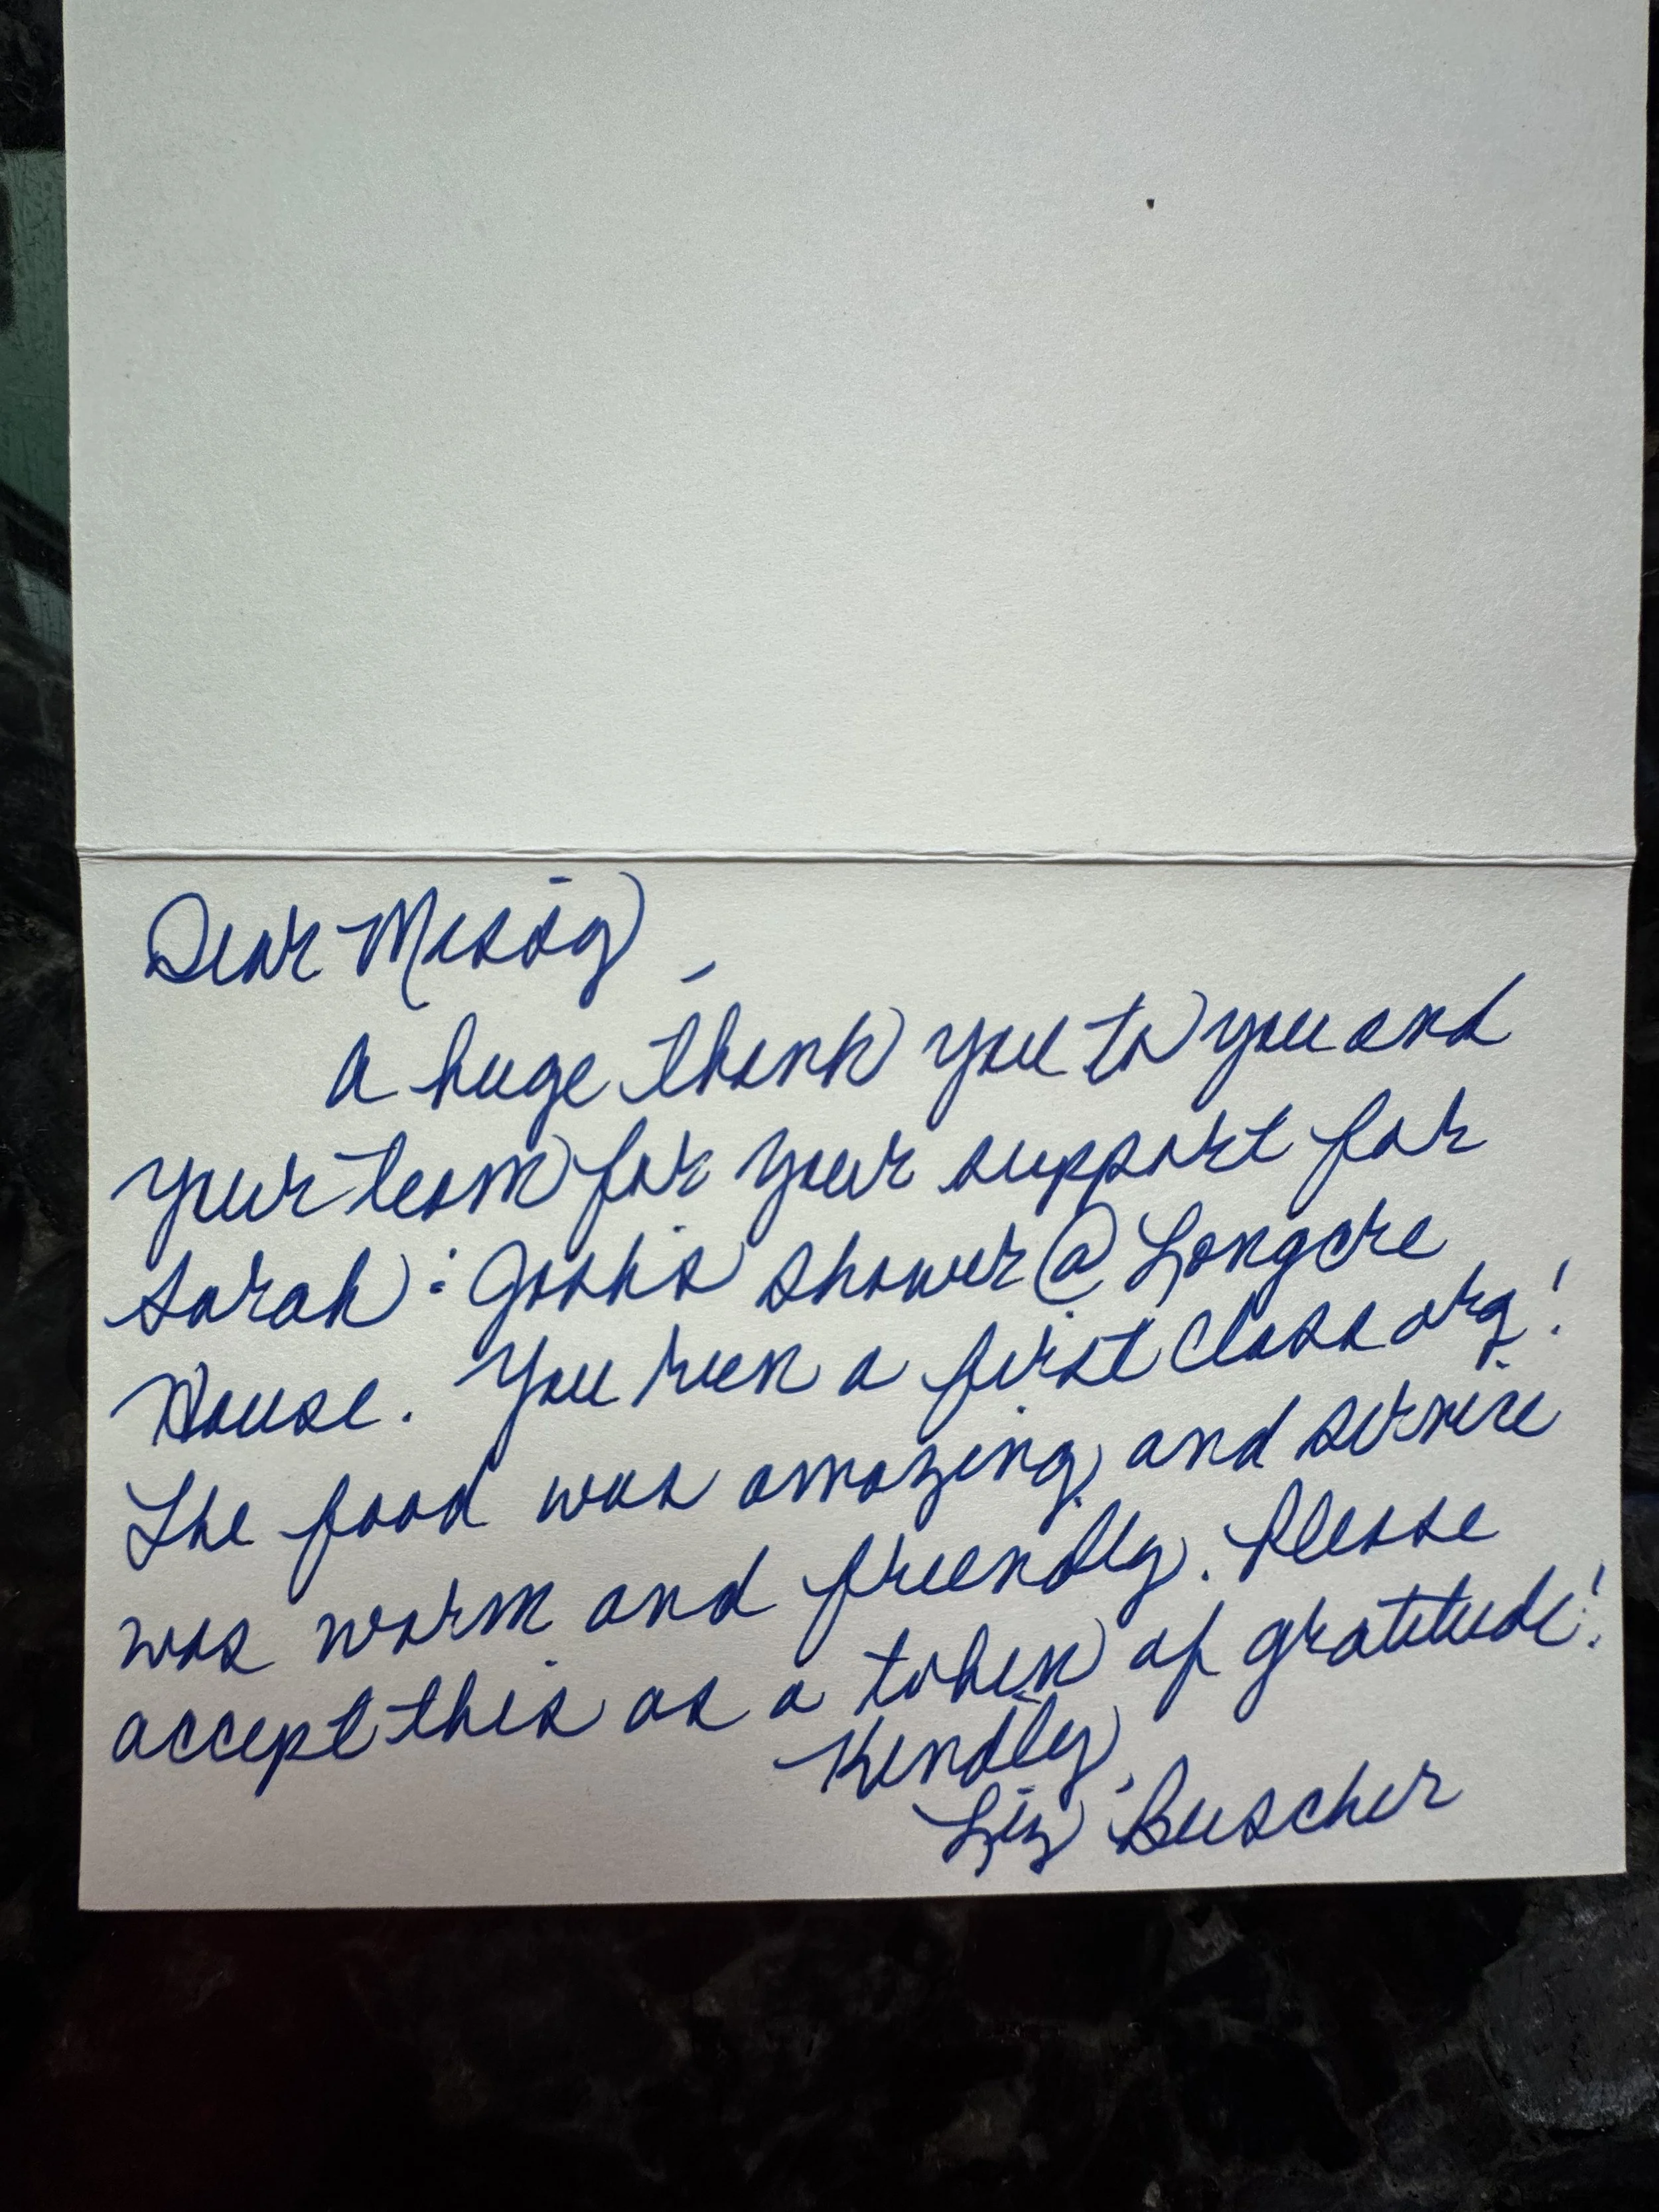 Dear Missy,
A huge thank you to you and
your team for your support for
Sarah : Josh's shower @ Longcre
House. You run a first class org!
The food was amazing and service
was warm and friendly. Please
accept this as a token of gratitude!
Kindly,
Liz Buscher